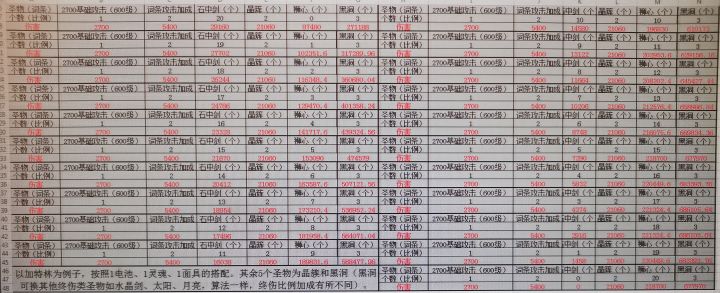 圣物（词条） 2700基础攻击（600级） 词条攻击加成 石中剑（个） 晶簇（个） 狮心（个） 黑洞（个） 圣物（词条） 2700基础攻击（600级） 词条攻击加成 中剑（个 晶簇（个） 狮心（个） 黑洞（个）
个数（比例） 1 2 20 2 3 个数（比例） 1 2 10 2 10 3
伤害 2700 5400 29160 21060 87480 271188 伤害 2700 5400 14580 21060 196830
圣物（词条） 2700基础攻击（600级） 词条攻击加成 石中剑（个） 晶簇（个） 狮心（个） 黑洞（个） 圣物（词条） 2700基础攻击（600级） 词条攻击加成 中剑（个 晶簇（个） 狮心（个） 黑洞（个）
个数（比例） 1 2 19 2 1 3 个数（比例） 1 2 9 2 11 3
伤害 2700 5400 27702 21060 伤害 2700 5400 13122 21060
圣物（词条） 2700基础攻击（600级） 词条攻击加成 石中剑（个） 晶簇（个） 狮心（个） 黑洞（个） 圣物（词条） 2700基础攻击（600级） 词条攻击加成 中剑（个 晶簇（个） 狮心（个） 黑洞（个）
个数（比例） 1 2 18 2 2 3 个数（比例） 1 2 8 2 12 3
伤害 2700 5400 26244 21060 伤害 2700 5400 11664 21060
圣物（词条） 2700基础攻击（600级） 词条攻击加成 石中剑（个） 晶簇（个） 狮心（个） 黑洞（个） 圣物（词条） 2700基础攻击（600级） 词条攻击加成 中剑（个 晶簇（个） 狮心（个） 黑洞（个）
个数（比例） 1 2 17 2 3 3 个数（比例） 1 2 7 2 13 3
伤害 2700 5400 24786 21060 129470.4 401358.24 伤害 2700 5400 10206 21060 212576.4
圣物（词条） 2700基础攻击（600级） 词条攻击加成 石中剑（个） 晶簇（个） 狮心（个） 黑洞（个） 圣物（词条） 2700基础攻击（600级） 词条攻击加成 中剑（个 晶簇（个） 狮心（个） 黑洞（个）
个数（比例） 1 2 16 2 4 3 个数（比例） 1 2 6 2 14 3
伤害 2700 5400 23328 21060 141717.6 439324.56 伤害 2700 5400 8748 21060 216075.6
圣物（词条） 2700基础攻击（600级） 词条攻击加成 石中剑（个） 晶簇（个） 狮心（个） 黑洞（个） 圣物（词条） 2700基础攻击（600级） 词条攻击加成 中剑（个 晶簇（个） 狮心（个） 黑洞（个）
个数（比例） 1 2 15 2 5 3 个数（比例） 1 2 5 2 15 3
伤害 2700 5400 21870 21060 153090 474579 伤害 2700 5400 7290 21060 218700 677970
圣物（词条） 2700基础攻击（600级） 词条攻击加成 石中剑（个） 晶簇（个） 狮心（个） 黑洞（个） 圣物（词条） 2700基础攻击（600级） 词条攻击加成 中剑（个 晶簇（个） 狮心（个） 黑洞（个）
个数（比例） 1 2 14 2 6 3 个数（比例） 1 2 4 2 16 3
伤害 2700 5400 20412 21060 163587.6 507121.56 伤害 2700 5400 5832 21060 220449.6
圣物（词条） 2700基础攻击（600级） 词条攻击加成 石中剑（个） 晶簇（个） 狮心（个） 黑洞（个） 圣物（词条） 2700基础攻击（600级） 词条攻击加成 中剑（个 晶簇（个） 狮心（个） 黑洞（个）
个数（比例） 1 2 13 2 7 3 个数（比例） 1 2 3 2 17 3
伤害 2700 5400 18954 21060 173210.4 536952.24 伤害 2700 5400 4374 21060
圣物（词条） 2700基础攻击（600级） 词条攻击加成 石中剑（个） 晶簇（个） 狮心（个） 黑洞（个） 圣物（词条） 2700基础攻击（600级） 词条攻击加成 中剑（个 晶簇（个） 狮心（个） 黑洞（个）
个数（比例） 1 2 12 2 8 3 个数（比例） 1 2 2 2 18 3
伤害 2700 5400 17496 21060 181958.4 564071.04 伤害 2700 5400 2916 21060
圣物（词条） 2700基础攻击（600级） 词条攻击加成 石中剑（个） 晶簇（个） 狮心（个） 黑洞（个） 圣物（词条） 2700基础攻击（600级） 词条攻击加成 中剑（个 晶簇（个） 狮心（个） 黑洞（个）
个数（比例） 1 2 11 2 9 3 个数（比例） 1 2 1 2 19 3
伤害 2700 5400 16038 21060 189831.6 588477.96 伤害 2700 5400 1458 21060
以加特林为例子，按照1电池、1灵魂、1面具的搭配。其余5个圣物为晶簇和黑洞（黑洞 圣物（词条） 2700基础攻击（600级） 词条攻击加成 中剑（个 晶簇（个） 狮心（个） 黑洞（个）
可换其他终伤类圣物如水晶剑、太阳、月亮，算法一样，终伤比例加成有所不同）。 个数（比例） 1 2 0 2 20 3
伤害 2700 5400 0 21060 218700 677970